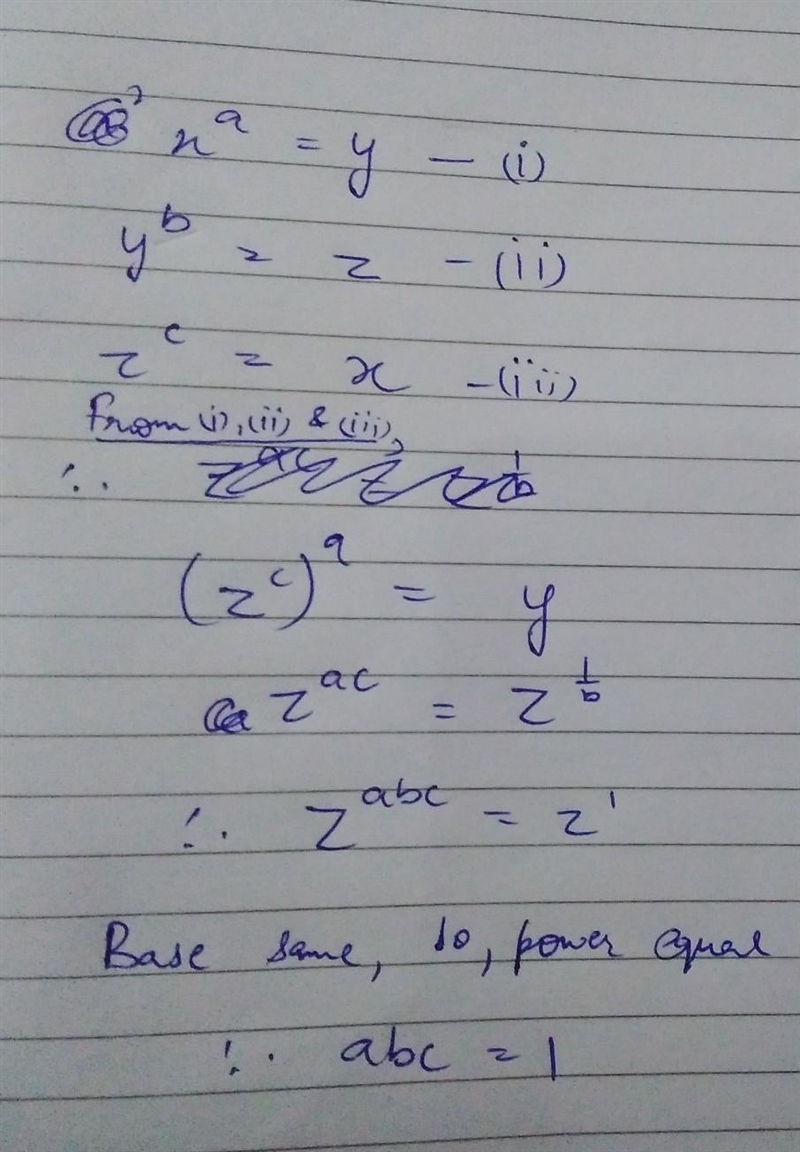 x^a = y - (i)
y^b = z - (ii)
z^c = x - (iii)
From (i), (ii) & (iii),
∴
(z^c)^a = y
z^ac = z^1/b
∴ z^abc = z^1
Base same, so, power equal
∴ abc = 1